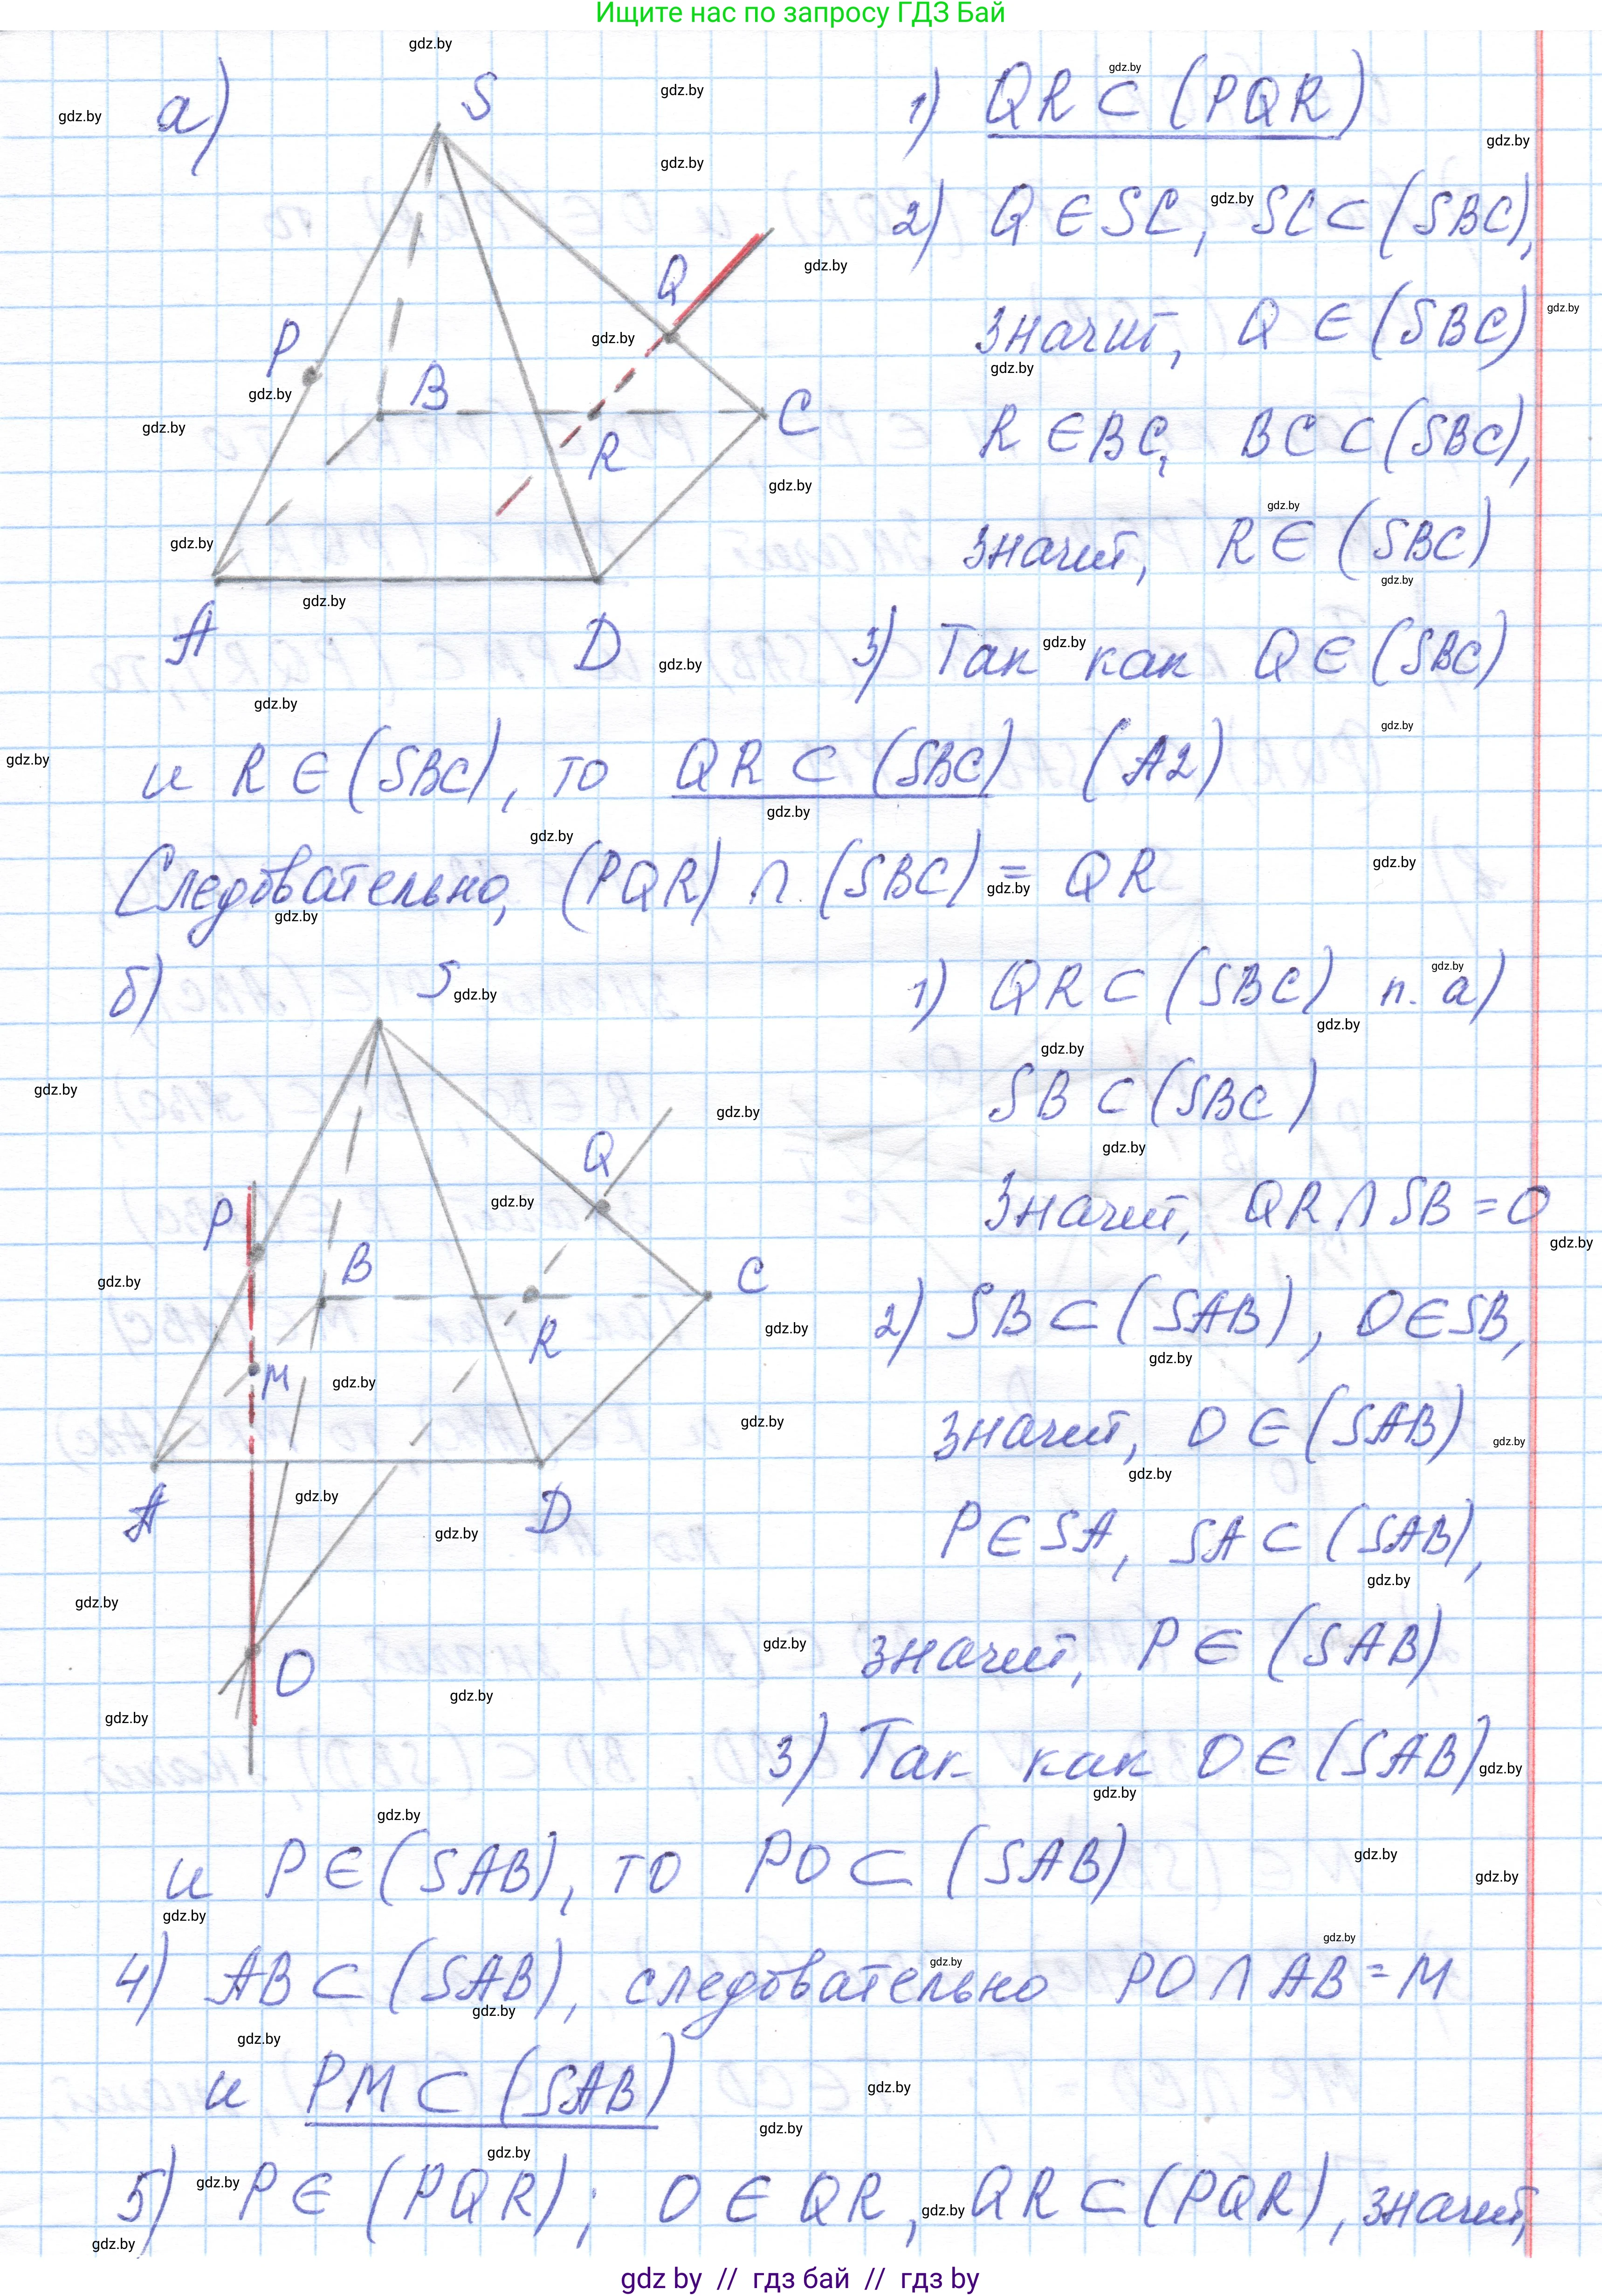 Ищите нас по запросу ГДЗ Бай
а)
S
P
Q
B
R
C
A
D
1) QR ⊂ (PQR)
2) Q ∈ SC, SC ⊂ (SBC),
значит, Q ∈ (SBC)
R ∈ BC, BC ⊂ (SBC),
значит, R ∈ (SBC)
3) Так как Q ∈ (SBC)
и R ∈ (SBC), то QR ⊂ (SBC) (A2)
Следовательно, (PQR) ∩ (SBC) = QR
б)
S
P
Q
B
C
M
R
A
D
O
1) QR ⊂ (SBC) п. а)
SB ⊂ (SBC)
Значит, QR ∩ SB = O
2) SB ⊂ (SAB), O ∈ SB,
значит, O ∈ (SAB)
P ∈ SA, SA ⊂ (SAB),
значит, P ∈ (SAB)
3) Так как O ∈ (SAB)
и P ∈ (SAB), то PO ⊂ (SAB)
4) AB ⊂ (SAB), следовательно PO ∩ AB = M
и PM ⊂ (SAB)
5) P ∈ (PQR); O ∈ QR, QR ⊂ (PQR), значит,
gdz by // гдз бай // гдз by